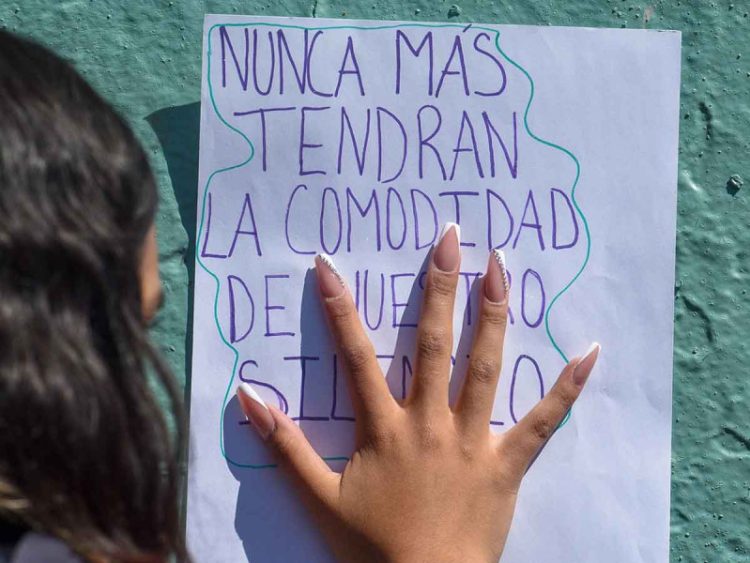 NUNCA MÁS
TENDRAN
LA COMODIDAD
DE NUESTRO
SILENCIO